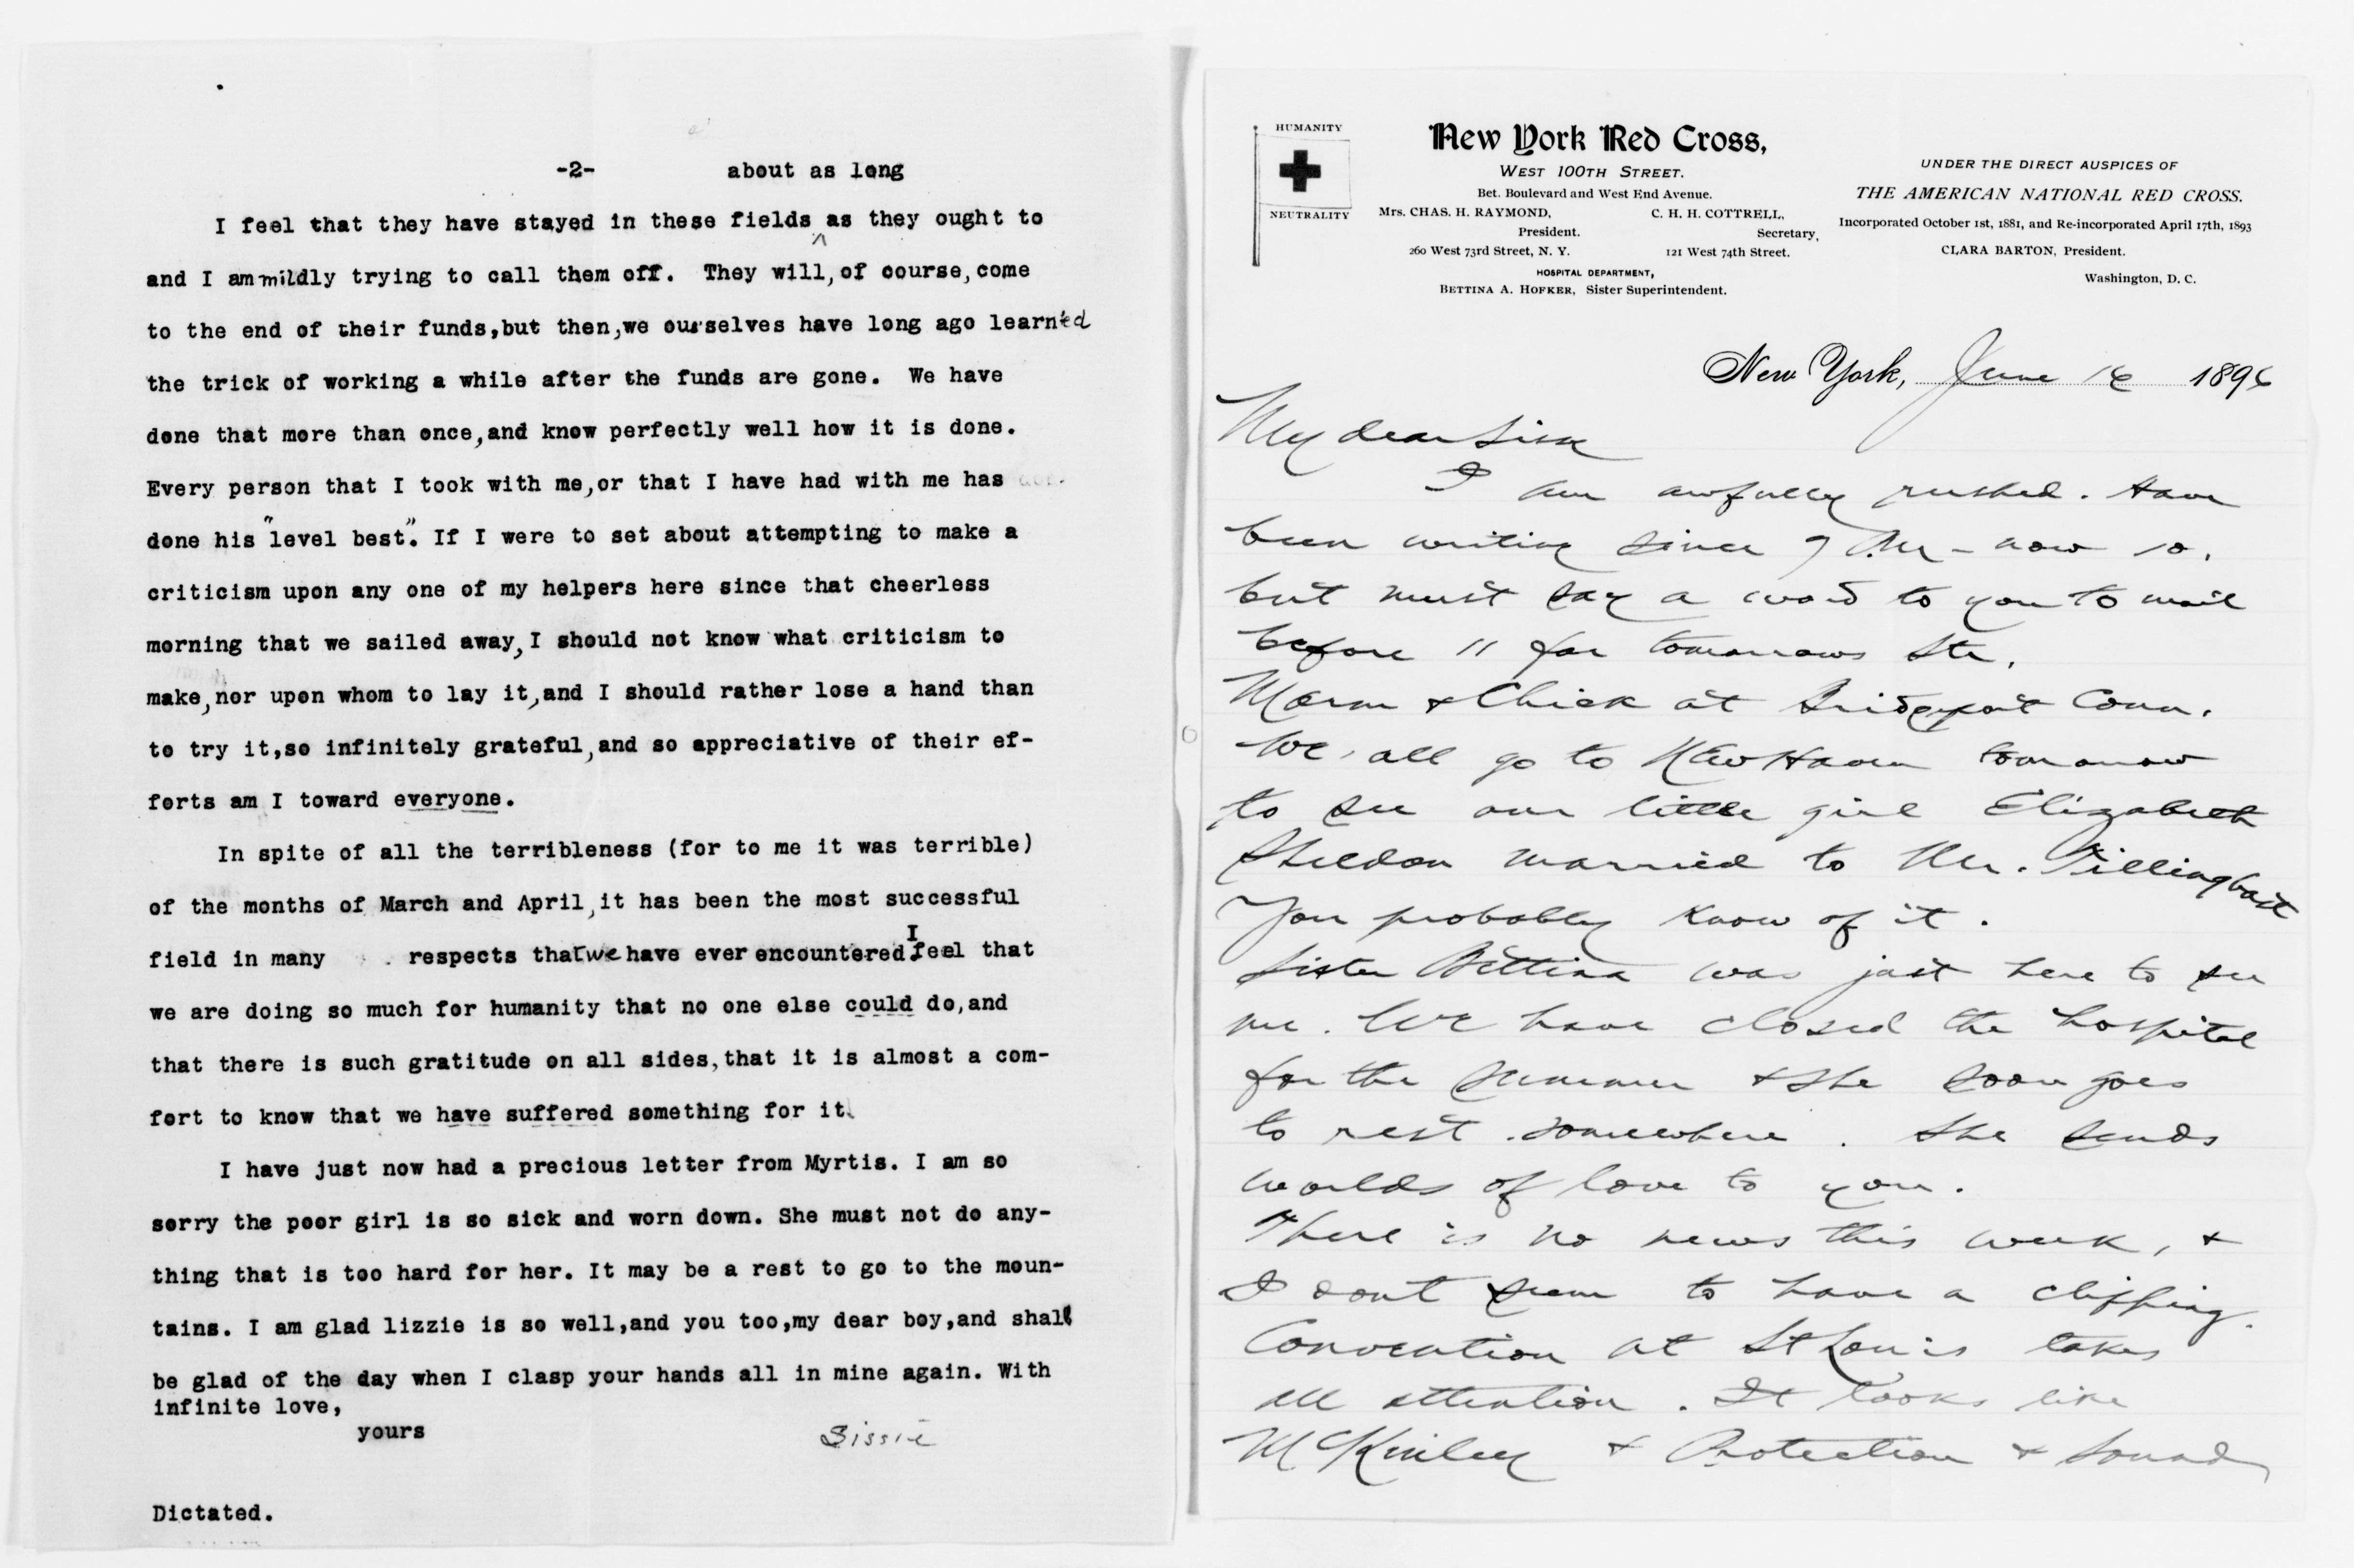 -2- about as long
I feel that they have stayed in these fields ^ as they ought to
and I am mildly trying to call them off. They will, of course, come
to the end of their funds, but then, we ourselves have long ago learned
the trick of working a while after the funds are gone. We have
done that more than once, and know perfectly well how it is done.
Every person that I took with me, or that I have had with me has
done his "level best". If I were to set about attempting to make a
criticism upon any one of my helpers here since that cheerless
morning that we sailed away, I should not know what criticism to
make, nor upon whom to lay it, and I should rather lose a hand than
to try it, so infinitely grateful, and so appreciative of their ef-
forts am I toward everyone.
In spite of all the terribleness (for to me it was terrible)
of the months of March and April, it has been the most successful
field in many respects that we have ever encountered I feel that
we are doing so much for humanity that no one else could do, and
that there is such gratitude on all sides, that it is almost a com-
fort to know that we have suffered something for it.
I have just now had a precious letter from Myrtis. I am so
sorry the poor girl is so sick and worn down. She must not do any-
thing that is too hard for her. It may be a rest to go to the moun-
tains. I am glad lizzie is so well, and you too, my dear boy, and shall
be glad of the day when I clasp your hands all in mine again. With
infinite love,
yours Sissie
Dictated.
HUMANITY
NEUTRALITY
New York Red Cross,
WEST 100TH STREET.
Bet. Boulevard and West End Avenue.
Mrs. CHAS. H. RAYMOND, C. H. H. COTTRELL,
President. Secretary,
260 West 73rd Street, N. Y. 121 West 74th Street.
HOSPITAL DEPARTMENT,
BETTINA A. HOFKER, Sister Superintendent.
UNDER THE DIRECT AUSPICES OF
THE AMERICAN NATIONAL RED CROSS.
Incorporated October 1st, 1881, and Re-incorporated April 17th, 1893
CLARA BARTON, President.
Washington, D. C.
New York, June 16 1896
My dear
I am awfully rushed. Have
been writing since 7 - now 10,
but must say a word to you to mail
before 11 for tomorrows Str.
Marm & Chick at Bridgeport Conn.
We all go to New Haven tomorrow
to see our little girl Elizabeth
Sheldon married to Mr. Tillinghast
You probably know of it.
Sister Bettina was just here to see
me. We have closed the hospital
for the summer & she soon goes
to rest somewhere. She sends
worlds of love to you.
There is no news this week, &
I dont seem to have a clipping.
Convention at St Louis takes
all attention. It looks like
McKinley & Protection & Sound